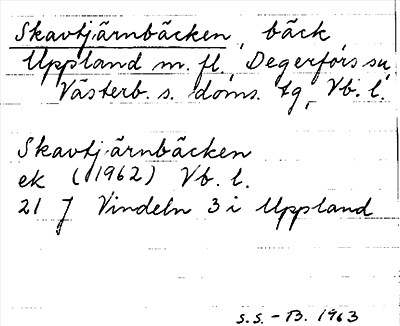 Skavtjärnbäcken, bäck
Uppland m. fl. Degerfors sn,
Västerb. s. doms. tg, Vb. l.
Skavtjärnbäcken
ek (1962) Vb. l.
21 J Vindeln 3 i Uppland
S.S. - B. 1963